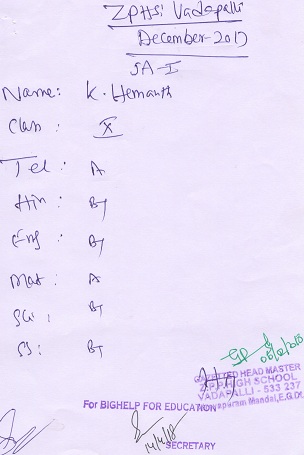 ZPHS; Vadapalli
December-2017
SA-I
Name: K. Hemanth
Class : X
Tel : A
Hin : B1
Eng : B1
Mat : A
Sci : B1
SS : B1
06/2/2018
GAZETTED HEAD MASTER
Z.P.P. HIGH SCHOOL
VADAPALLI - 533 237
Mandal, E.G.Dt.
For BIGHELP FOR EDUCATION
14/4/18
SECRETARY